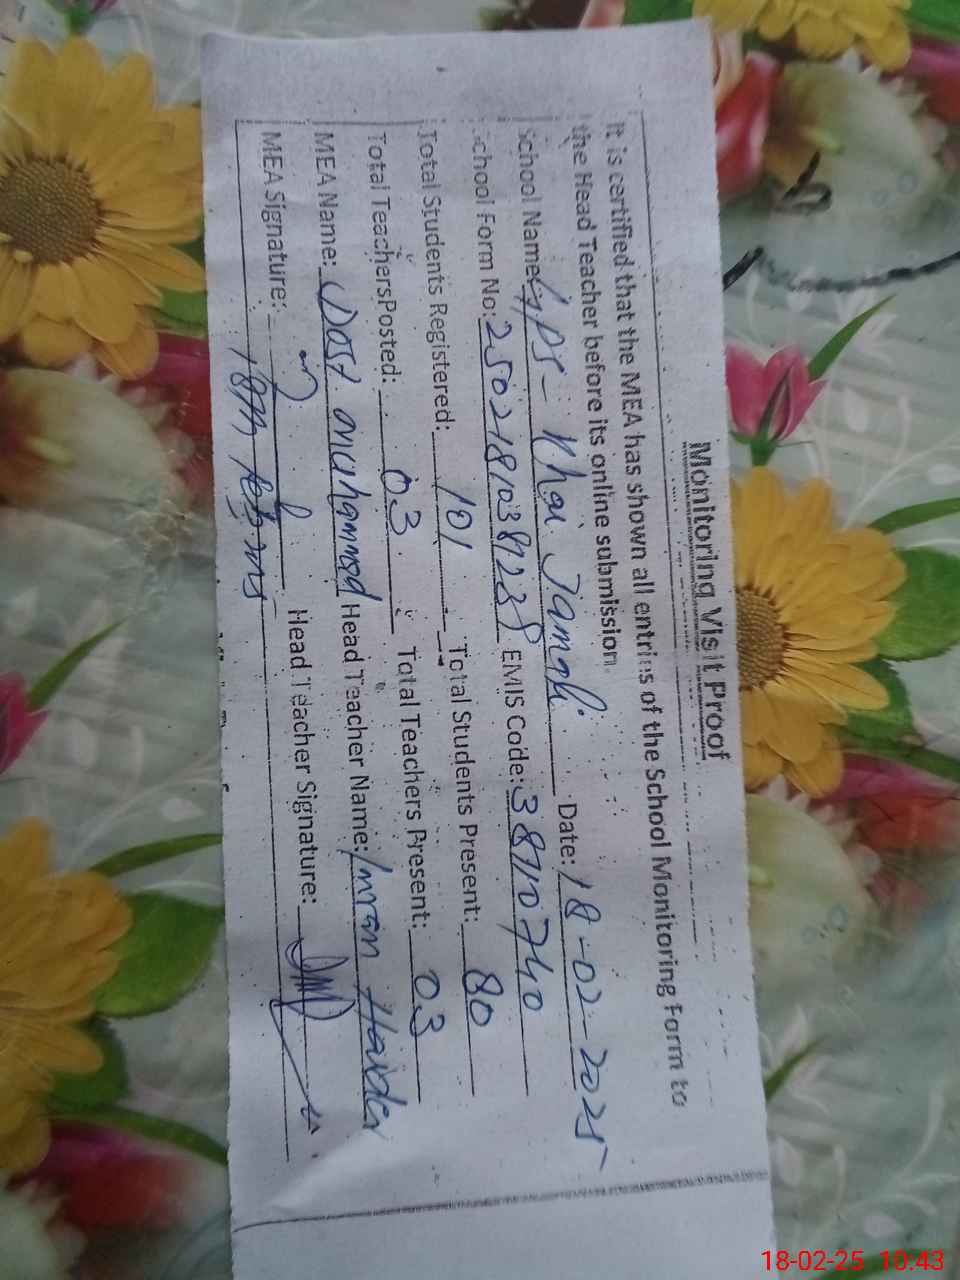 Monitoring Visit Proof
It is certified that the MEA has shown all entries of the School Monitoring Form to
the Head Teacher before its online submission.
School Name: GPS - Khai Jamali Date: 18-02-2025
School Form No: 25021810387238 EMIS Code: 38710740
Total Students Registered: 101 Total Students Present: 80
Total TeachersPosted: 03 Total Teachers Present: 03
MEA Name: Dost Muhammad Head Teacher Name: Imran Haider
MEA Signature: Head Teacher Signature:
18-02-25 10:43